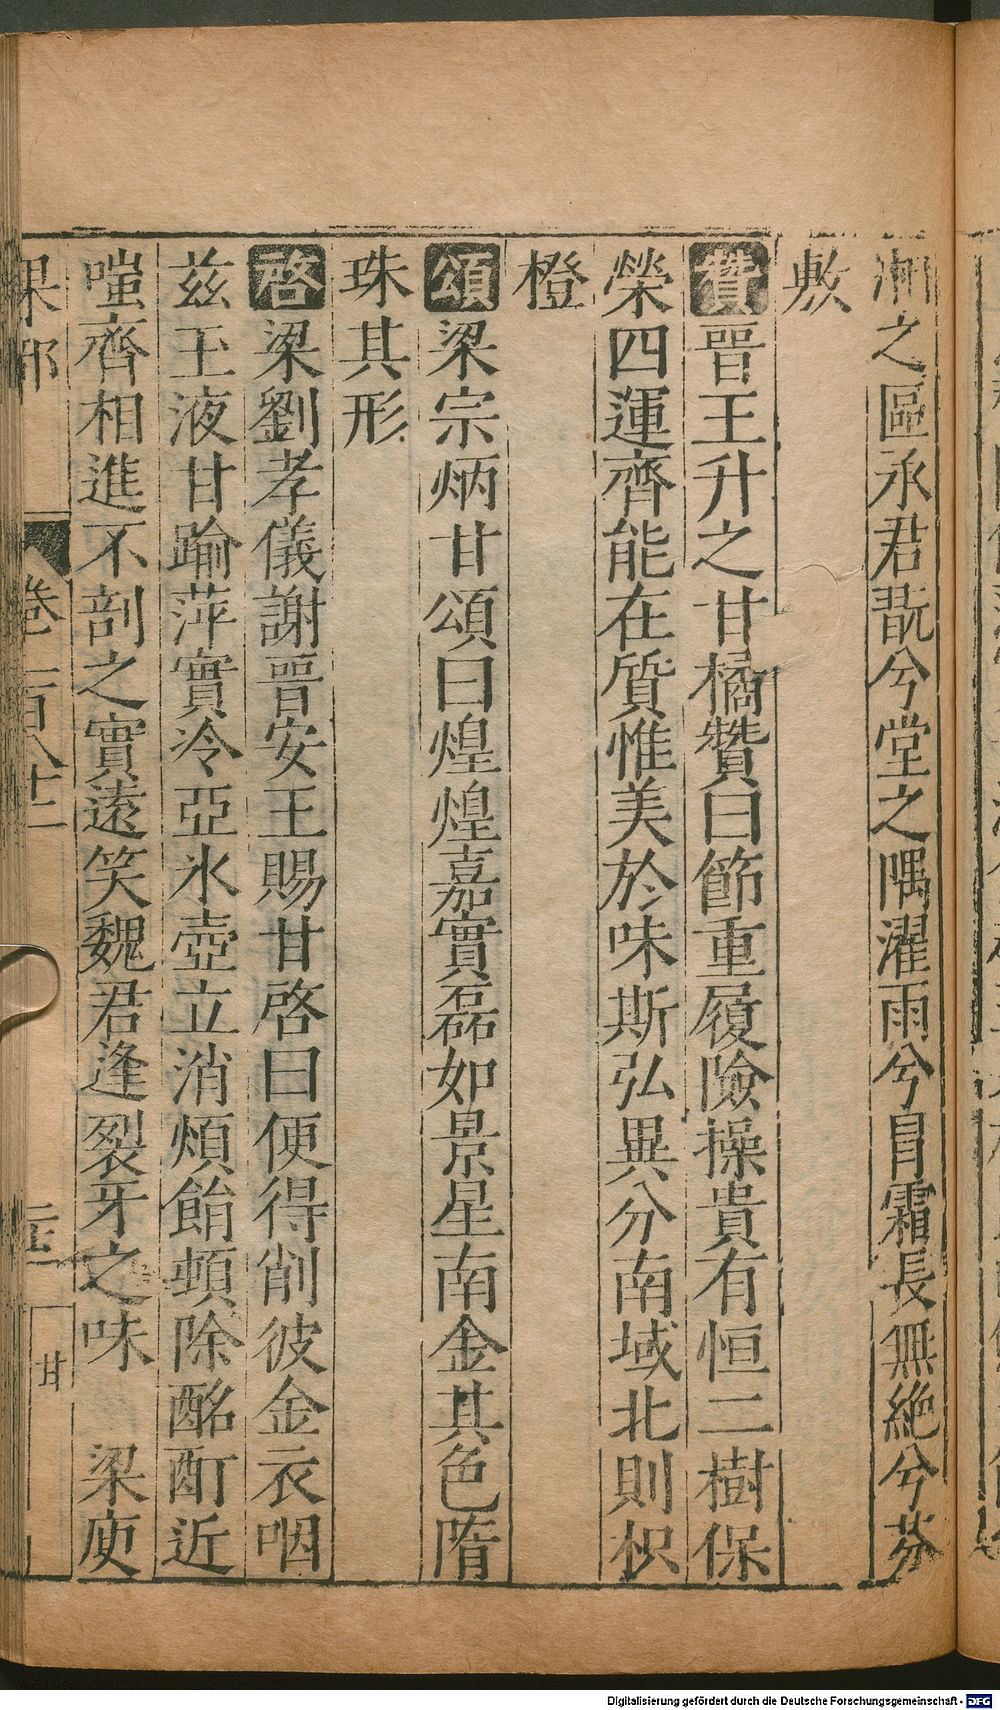 湘之區承君翫兮堂之隅濯雨兮冒霜長無絶兮芬
敷
贊晉王升之甘橘贊曰節重履險操貴有恒二樹保
榮四運齊能在質惟美於味斯弘異分南域北則枳
橙
頌梁宗炳甘頌曰煌煌嘉實磊如景星南金其色隋
珠其形
啓梁劉孝儀謝晉安王賜甘啓曰便得削彼金衣咽
兹玉液甘踰萍實冷亞冰壺立消煩飴頓除酩酊近
嗤齊相進不剖之實遠笑魏君逢裂牙之味 梁庾
果部 卷一百八十二 甘
Digitalisierung gefördert durch die Deutsche Forschungsgemeinschaft - DFG